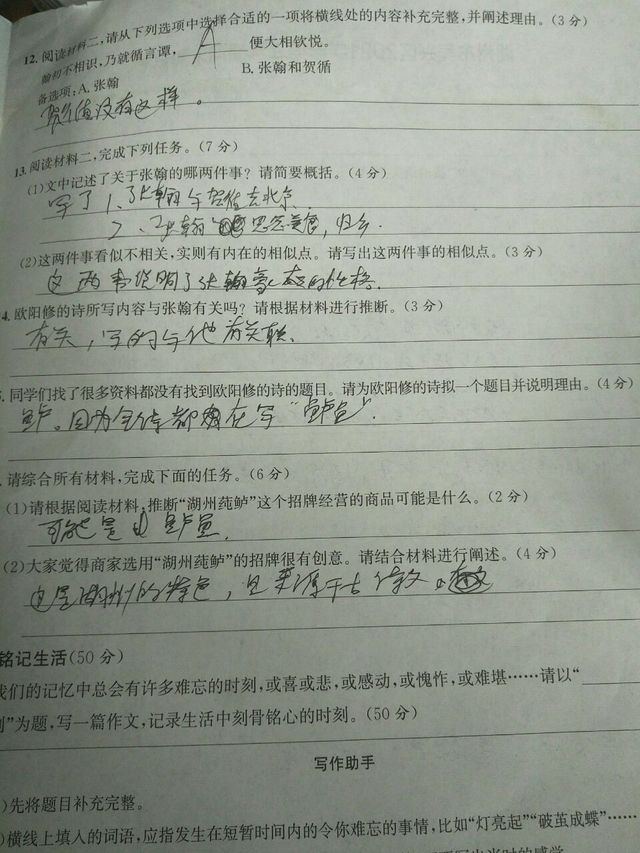 12. 阅读材料二,请从下列选项中选择合适的一项将横线处的内容补充完整,并阐述理由。(3分)
翰初不相识,乃就循言谭, A 便大相钦悦。
备选项:A. 张翰 B. 张翰和贺循
贺循没有这样。
13. 阅读材料二,完成下列任务。(7分)
(1)文中记述了关于张翰的哪两件事?请简要概括。(4分)
写了 1、张翰与贺循去北京.
2、张翰 思念美食,归乡.
(2)这两件事看似不相关,实则有内在的相似点。请写出这两件事的相似点。(3分)
这两事说明了张翰 的性格.
4. 欧阳修的诗所写内容与张翰有关吗?请根据材料进行推断。(3分)
有关,写的与他有关联.
. 同学们找了很多资料都没有找到欧阳修的诗的题目。请为欧阳修的诗拟一个题目并说明理由。(4分)
鲈。因为全诗都在写“鲈鱼”.
. 请综合所有材料,完成下面的任务。(6分)
(1)请根据阅读材料,推断“湖州莼鲈”这个招牌经营的商品可能是什么。(2分)
可能是 鲈鱼.
(2)大家觉得商家选用“湖州莼鲈”的招牌很有创意。请结合材料进行阐述。(4分)
这是湖州的特色,且来源于古诗文
铭记生活(50分)
我们的记忆中总会有许多难忘的时刻,或喜或悲,或感动,或愧怍,或难堪……请以“______
刻”为题,写一篇作文,记录生活中刻骨铭心的时刻。(50分)
写作助手
)先将题目补充完整。
)横线上填入的词语,应指发生在短暂时间内的令你难忘的事情,比如“灯亮起”“破茧成蝶”……